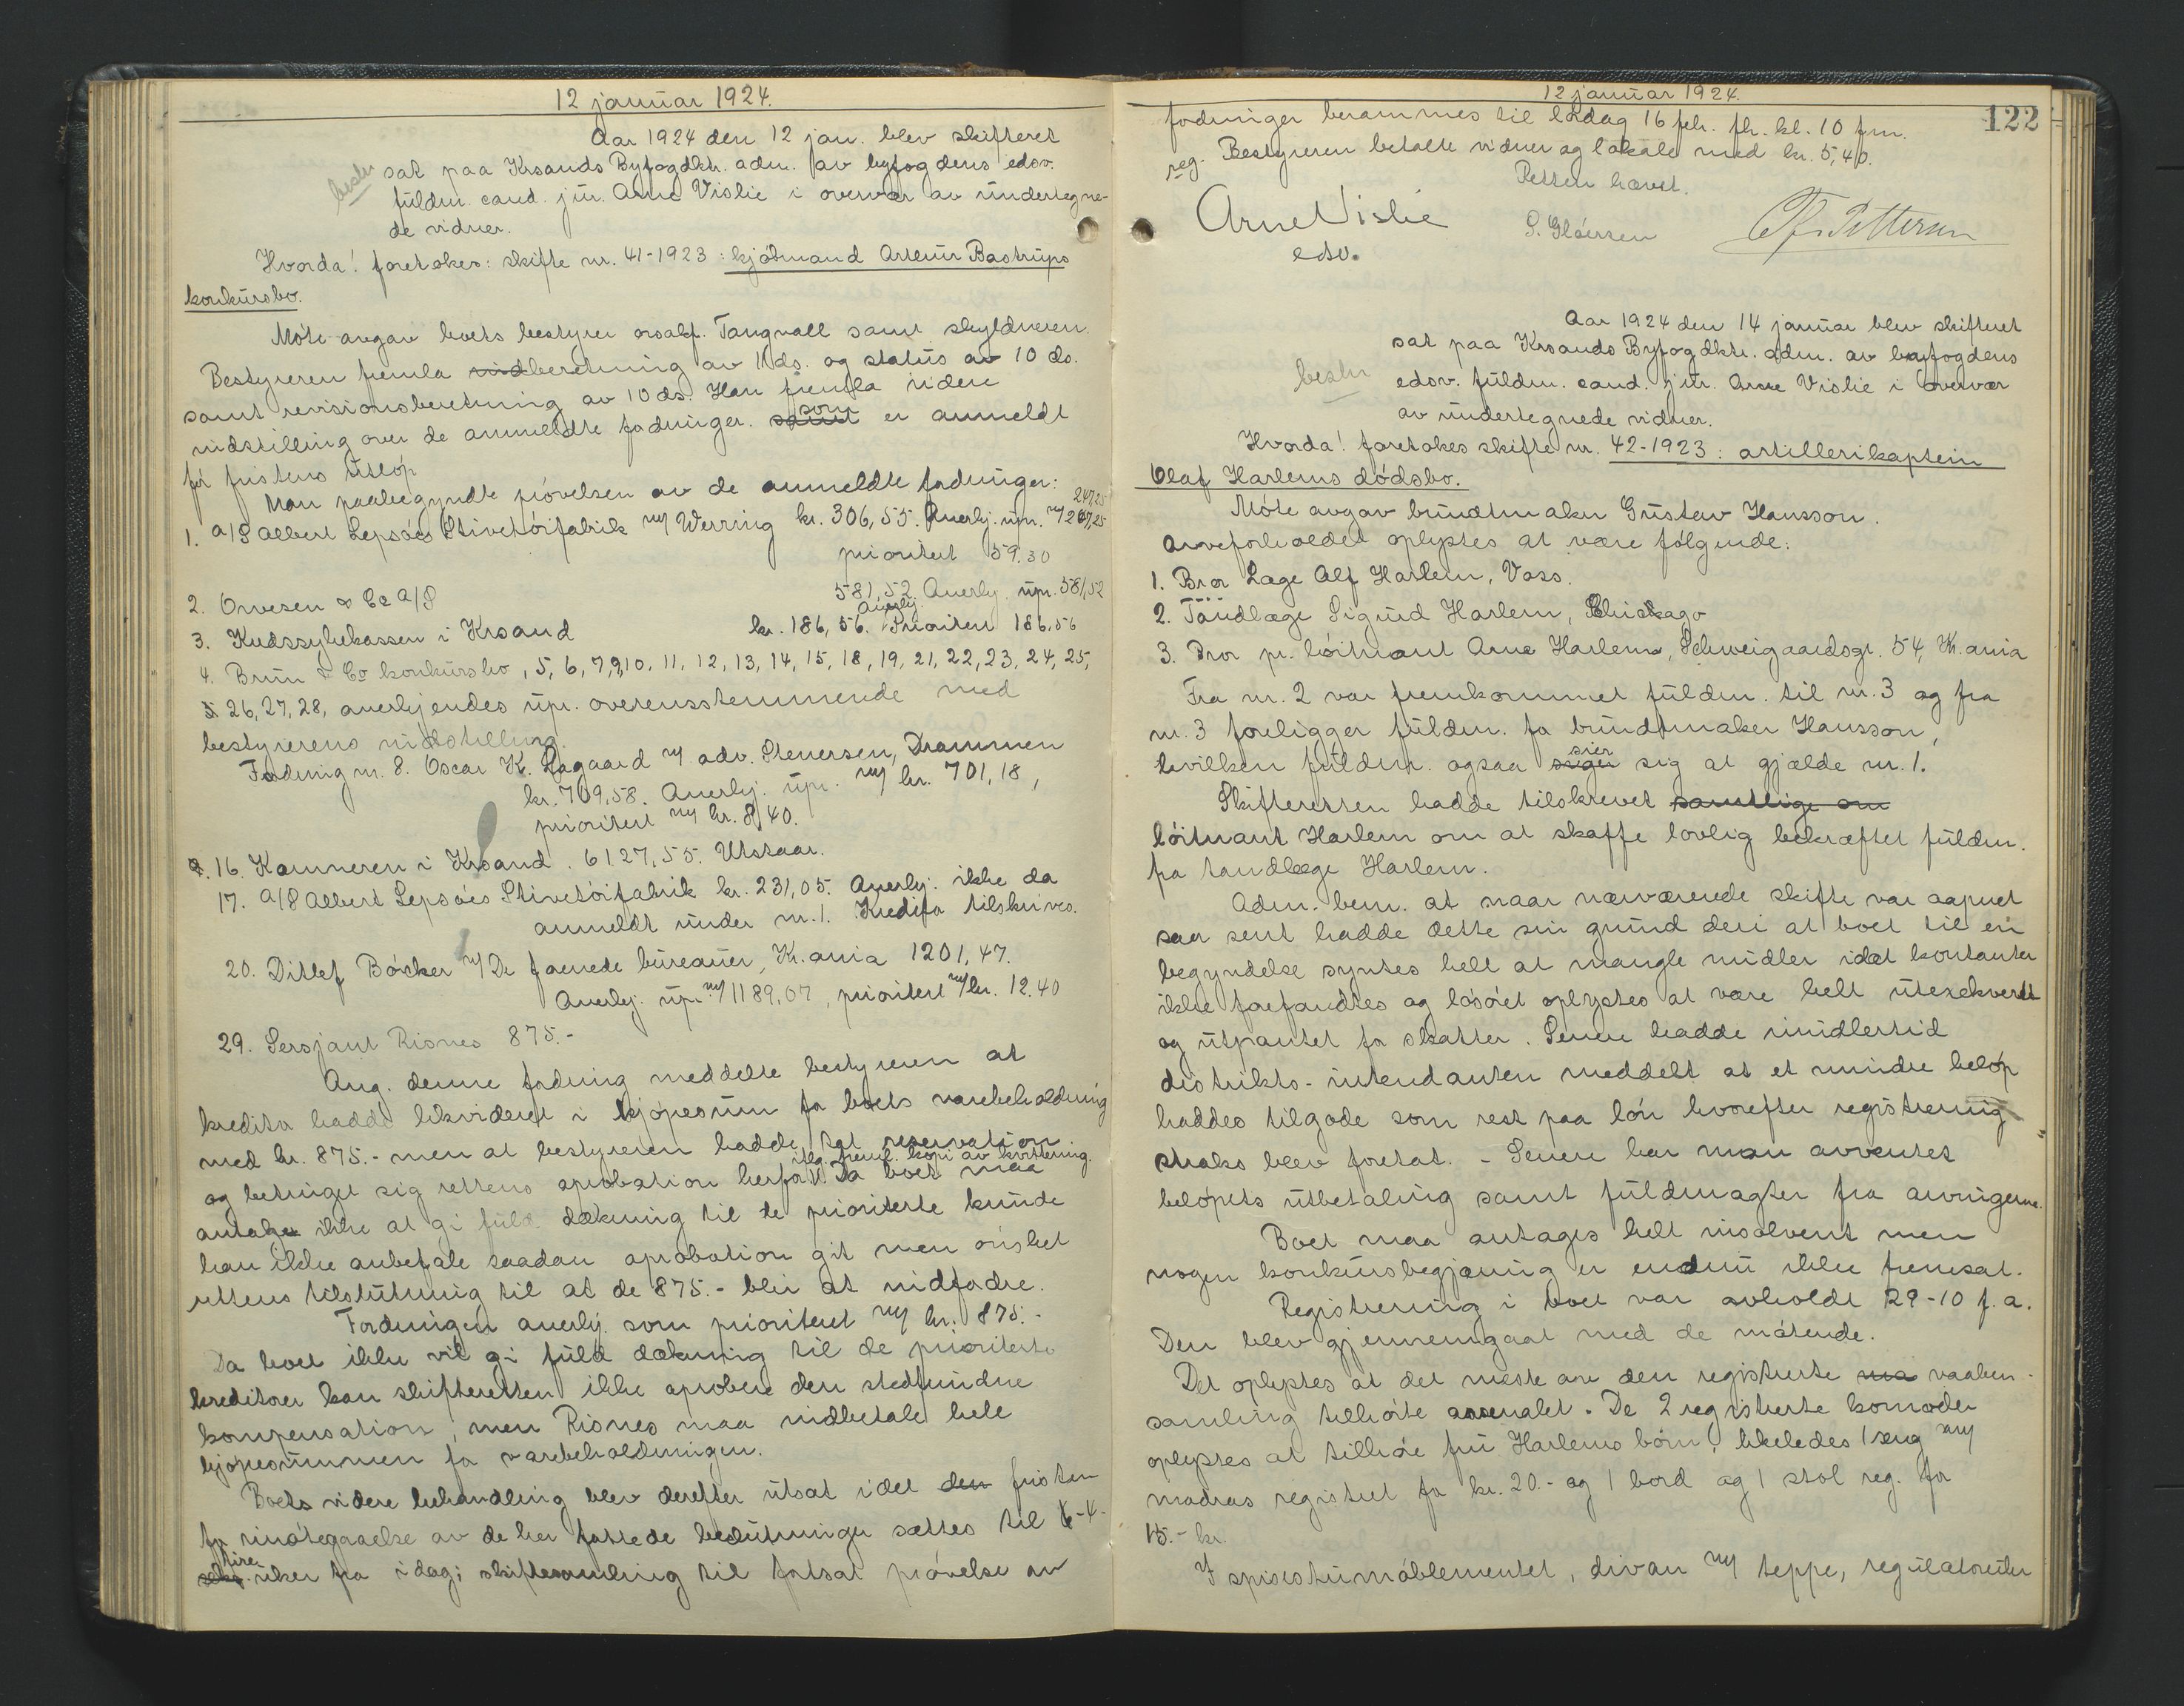 12 januar 1924.
Aar 1924 den 12 jan. blev skifteret
beskr
sat paa Krsands Byfogdktr. adm. av byfogdens edsv.
fuldm. cand. jur. Arne Vislie i overvær av undertegne-
de vidner.
Hvorda! foretokes: skifte nr. 41-1923: kjøbmand Artur Bastrups
konkursbo.
Møte avgav boets bestyrer orsakf. Tangvall samt skyldneren.
Bestyreren fremla indberetning av 11 ds. og status av 10 ds.
samt revisionsberetning av 10 ds. Han fremla videre
indstilling over de anmeldte fodringer. samt som er anmeldt
før fristens utløp
Man paabegyndte prøvelsen av de anmeldte fodringer:
1. A/S Albert Lepsøes Stivetøifabrik m/ Werring kr. 306,55. Anerkj. upr. m/ 247,25
247,25
prioritert 59.30
2. Ovesen & Co A/S 581,52 Anerkj. upr. 581,52
3. Kredssykekassen i Krsand kr. 186,56. Anerkj. Prioritert 186,56
4. Bruun & Co konkursbo, 5, 6, 7, 9, 10, 11, 12, 13, 14, 15, 18, 19, 21, 22, 23, 24, 25,
26, 27, 28, anerkjendes upr. overensstemmende med
bestyrerens indstilling.
Fodring nr. 8. Oscar K. Lagaard m/ adv. Stenersen, Drammen
kr. 709,58. Anerkj. upr. m/ kr. 701,18,
prioritert m/ kr. 8,40.
16. Kæmneren i Krsand. 6127,55. Utstaar.
17. A/S Albert Lepsøes Stivetøifabrik kr. 231,05. Anerkj. ikke da
anmeldt under nr. 1. Kreditor tilskrives.
20. Ditlef Böcker m/ De forenede bureauer, Kr.ania 1201,47.
Anerkj. upr. m/ 1189,07, prioritert m/ kr. 12.40
29. Sersjant Risnes 875.-
Ang. denne fodring meddelte bestyreren at
kreditor hadde likvideret i kjøpesum for boets varebeholdning
med kr. 875.- men at bestyreren hadde tat reservation
iflg. freml. kopi av kvittering.
og betinget sig rettens aprobation herfor. Da boet maa
antages ikke at gi fuld dækning til de prioriterte kunde
han ikke anbefale saadan aprobation git men ønsket
rettens tilslutning til at de 875.- blir at indfodre.
Fordringen anerkj. som prioritert m/ kr. 875.-
Da boet ikke vil gi fuld dækning til de prioriterte
kreditorer kan skifteretten ikke aprobere den stedfundne
kompensation, men Risnes maa indbetale hele
kjøpesummen for varebeholdningen.
Boets videre behandling blev derefter utsat idet den fristen
for imøtegaaelse av de her fattede beslutninger sættes til 4-
fire uker fra idag; skiftesamling til fortsat prøvelse av
12 januar 1924.
122
fodringer berammes til lørdag 16 feb. fh. kl. 10 fm.
reg. Bestyreren betalte vidner og lokale med kr. 5,40.
Retten hævet.
Arne Vislie
edsv.
Aar 1924 den 14 januar blev skifteret
sat paa Krsands Byfogdktr. adm. av byfogdens
beskr
edsv. fuldm. cand. jur. Arne Vislie i overvær
av undertegnede vidner.
Hvorda! foretokes skifte nr. 42-1923: artillerikaptein
Olaf Harlems dødsbo.
Møte avgav bundtmaker Gustav Hansson.
Arveforholdet oplystes at være følgende:
1. Bror Læge Alf Harlem, Voss.
2. Tandlæge Sigurd Harlem, Chicago
3. Bror pr. løitnant Arne Harlem, Schweigaardsgt. 54, Kr.ania
Fra nr. 2 var fremkommet fuldm. til nr. 3 og fra
nr. 3 foreligger fuldm. for bundtmaker Hansson,
hvilken fuldm. ogsaa siger sier sig at gjælde nr. 1.
Skifteretten hadde tilskrevet samtlige om
løitnant Harlem om at skaffe lovlig bekræftet fuldm.
fra tandlæge Harlem.
Adm. bem. at naar nærværende skifte var aapnet
saa sent hadde dette sin grund deri at boet til en
begyndelse syntes helt at mangle midler idet kontanter
ikke forefandtes og løsøret oplystes at være helt utexekvert
og utpantet for skatter. Senere hadde imidlertid
distrikts-intendanten meddelt at et mindre beløp
haddes tilgode som rest paa løn hvorefter registrering
straks blev foretat. - Senere har man avventet
beløpets utbetaling samt fuldmagter fra arvingerne.
Boet maa antages helt insolvent men
nogen konkursbegjæring er endnu ikke fremsat.
Registrering i boet var avholdt 29-10 f. a.
Den blev gjennemgaat med de møtende.
Det oplystes at det meste av den registrerte vaaben-
samling tilhørte arsenalet. De 2 registrerte komoder
oplystes at tilhøre fru Harlems børn, likeledes 1 seng m/
madras registrert for kr. 20.- og 1 bord og 1 stol reg. for
15.- kr.
I spisestuemøblementet, divan m/ teppe, regulatoruhr